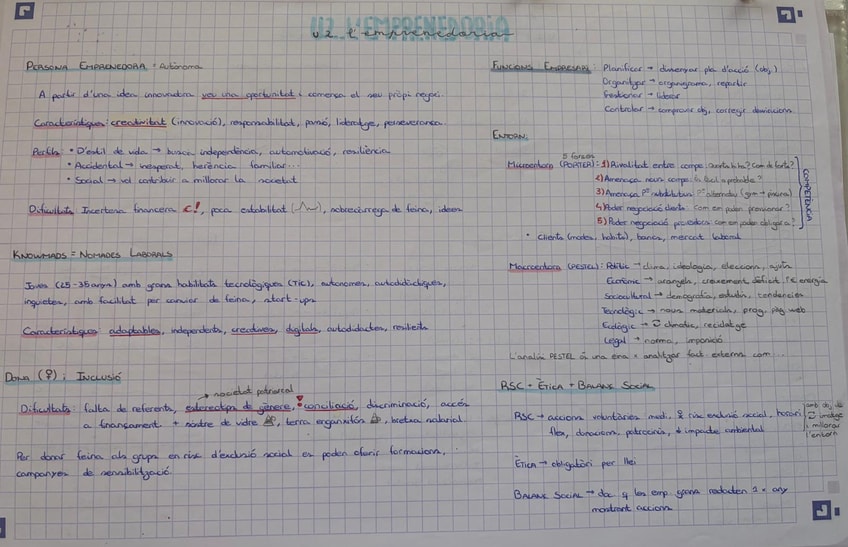 U2. L'EMPRENEDORIA
U2 l'emprenedoria
PERSONA EMPRENEDORA = Autònoma
A partir d'una idea innovadora veu una oportunitat i comença el seu propi negoci.
Característiques: creativitat (innovació), responsabilitat, passió, lideratge, perseverança.
Perfils: • D'estil de vida → busca independència, automotivació, resiliència
• Accidental → inesperat, herència familiar...
• Social → vol contribuir a millorar la societat
Dificultats: Incertesa financera €!, poca estabilitat, sobrecàrrega de feina, idees
KNOWMADS = NOMADES LABORALS
Joves (25-35 anys) amb grans habilitats tecnològiques (TIC), autònomes, autodidàctiques,
inquietes, amb facilitat per canviar de feina, start-ups
Característiques: adaptables, independents, creatives, digitals, autodidactes, resilients
DONA (♀) i INCLUSIÓ
→ societat patriarcal
Dificultats: falta de referents, estereotips de gènere, conciliació, discriminació, accés
a finançament + sostre de vidre, terra enganxifós, bretxa salarial.
Per donar feina als grups en risc d'exclusió social es poden oferir formacions,
campanyes de sensibilització.
FUNCIONS EMPRESARI: Planificar → dissenyar pla d'acció (obj.)
Organitzar → organigrama, repartir
Gestionar → liderar
Controlar → comprovar obj, corregir desviacions
ENTORN:
5 forces
Microentorn (PORTER) = 1) Rivalitat entre compe: Quanta hi ha? Com de forta?
2) Amenaça nous compe: És fàcil o probable?
3) Amenaça Pᵉ substitutius: alternatiu (gym → piscina)
4) Poder negociació clients: Com em poden pressionar?
5) Poder negociació proveïdors: Com em poden obligar a?
COMPETÈNCIA
• Clients (modes, hàbits), bancs, mercat laboral
Macroentorn (PESTEL): Polític → clima, ideologia, eleccions, ajuts
Econòmic → aranzels, creixement, dèficit, P€ energia
Sociocultural → demografia, estudis, tendències
Tecnològic → nous materials, prog, pàg web
Ecològic → climàtic, reciclatge
Legal → norma, imposició
L'anàlisi PESTEL és una eina x analitzar fact. externs com...
RSC + ÈTICA + BALANÇ SOCIAL
RSC → accions voluntàries medi, & risc exclusió social, horari
flex, donacions, patrocinis, ↓ impacte ambiental
amb obj. de
imatge
i millorar
l'entorn
ÈTICA → obligatòri per llei
BALANÇ SOCIAL → doc q les emp. grans redacten 1 x any
mostrant accions